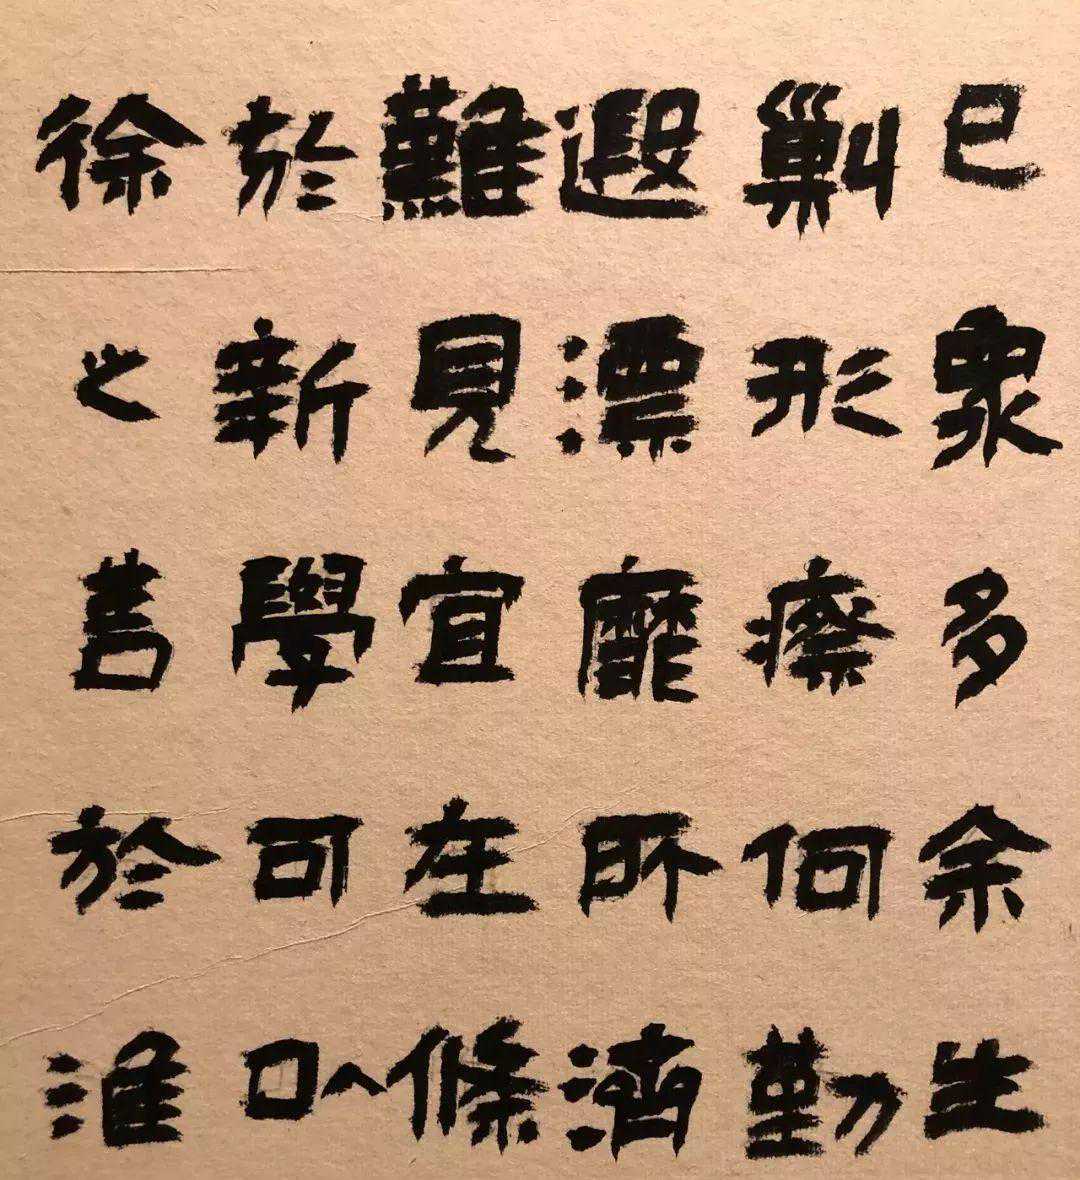 已眾多余生
剿形瘵何勤
遐漂靡所濟
難見宜在條
於新學可以
徐之於淮